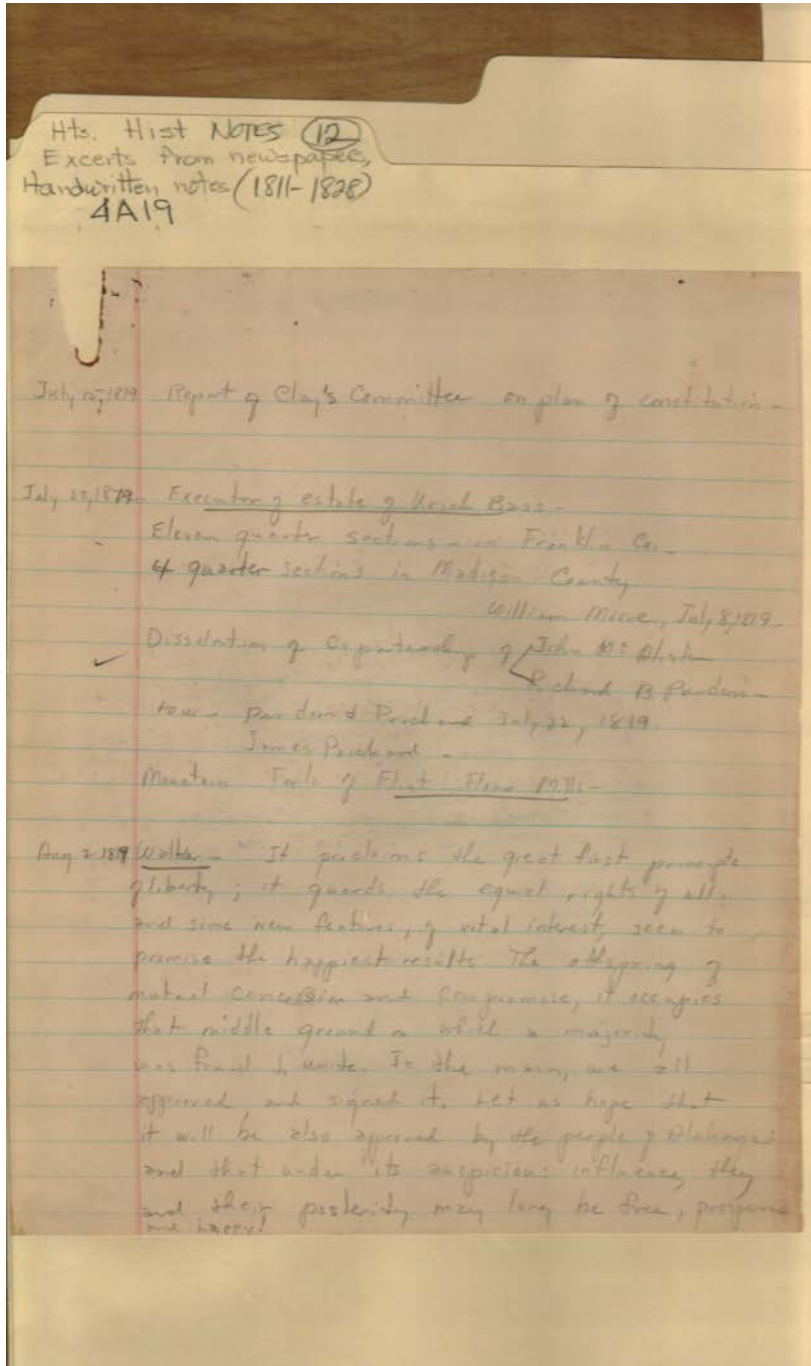 Hts. Hist NOTES (12)
Excerts from newspapers,
Handwritten notes (1811-1828)
4A19
July 15, 1819 Report of Clay's Committee on plan of constitution -
July 1819 - Executor of estate of Uriah Bass -
Eleven quarter sections - in Franklin Co. -
4 quarter sections in Madison County
William Moore, July 8, 1819 -
Dissolution of Copartnership of John
Richard B
now - and July 22, 1819
James -
Mountain of Flint Mills -
Aug 2 1819 Walker - "It proclaims the great first principle
of liberty; it guards the equal rights of all;
and some new features, of vital interest, seem to
promise the happiest results The offspring of
mutual concession and compromise, it occupies
that middle ground on which a majority
was found to unite. In the main, we all
approved, and signed it. Let us hope that
it will be also approved by the people of Alabama;
and that under its auspicious influence, they
and their posterity may long be free, prosperous
and happy!